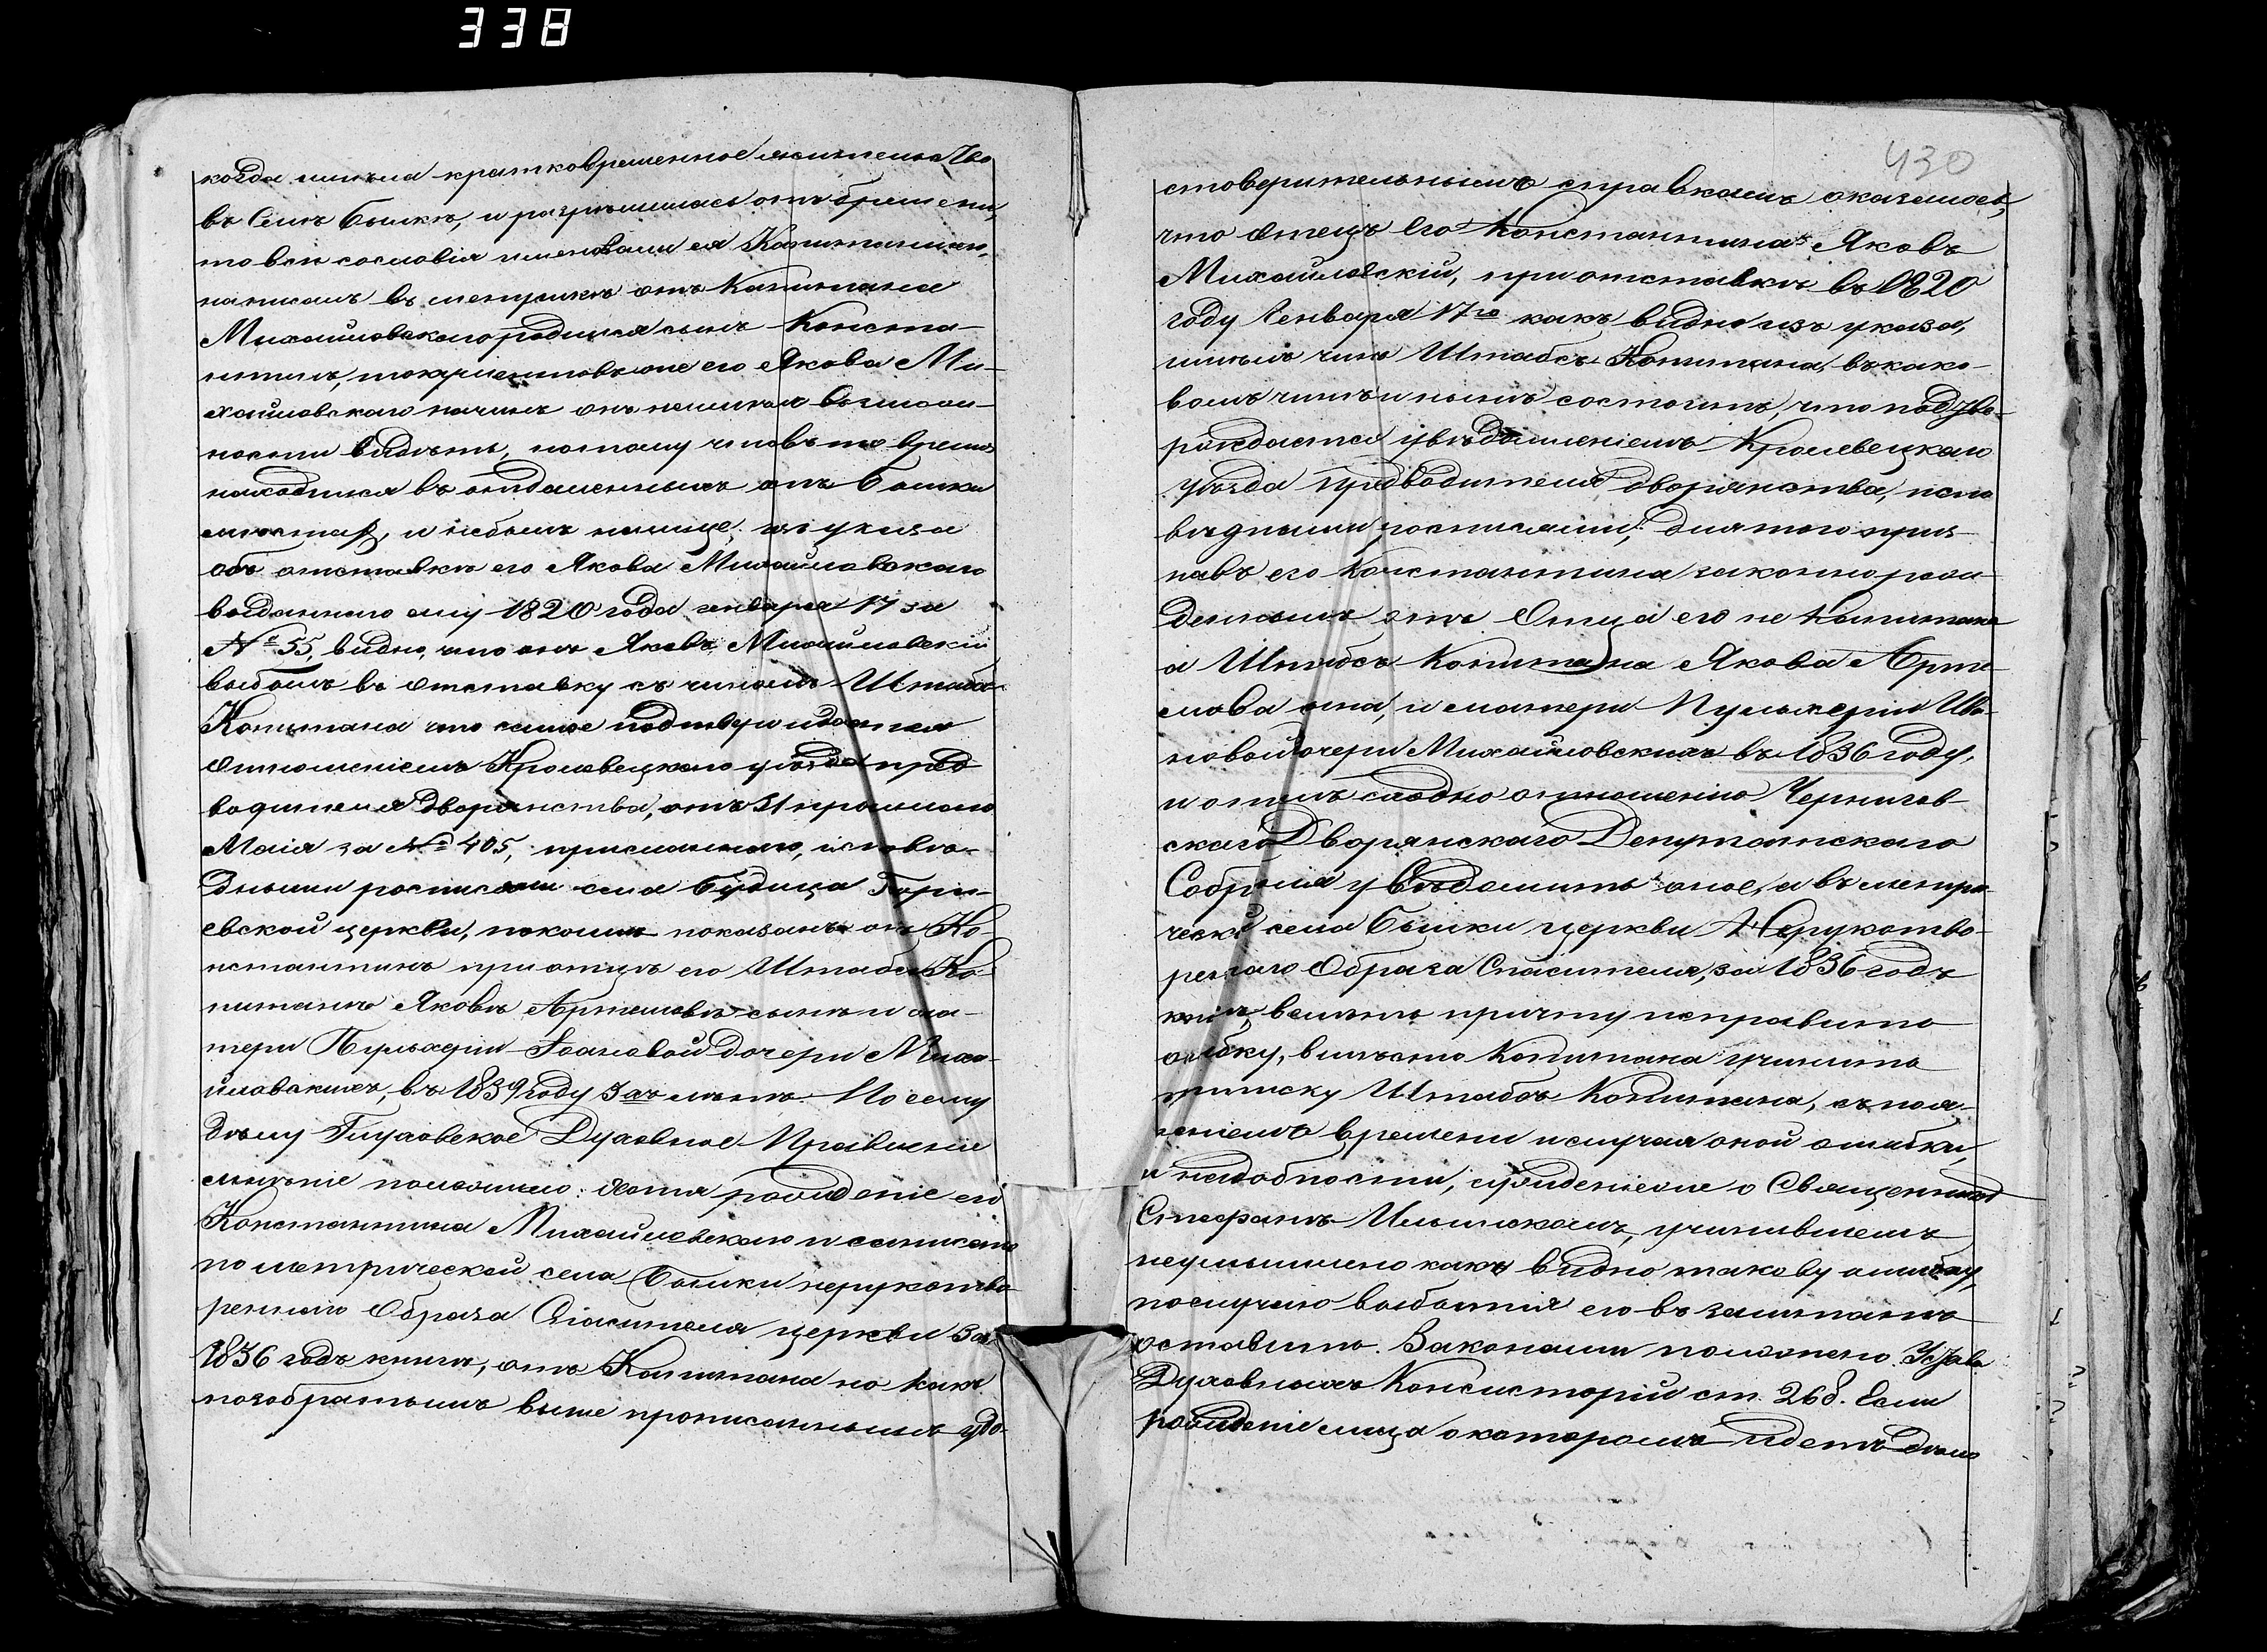 338
когда имѣла кратковременное жительство
въ семъ Быкѣ, и разрѣшилась отъ бремени,
то вси сословія именовали ея Капитаншею,
написалъ въ метрикѣ отъ Капитана
Михайловскаго родился сынъ Конста-
нтинъ, документовъ же его Якова Ми-
хайловскаго начинъ онъ не имѣлъ возмож-
ности видѣть, потому что въ то время
находился въ отдаленныхъ отъ Бышки
мѣстахъ, и небылъ налице, изъ указа
объ отставкѣ его Якова Михайловскаго
выданнаго ему 1820 года генваря 17 за
№ 55, видно, что онъ Яковъ Михайловскій
выбылъ въ отставку съ чиномъ Штабсъ-
Капитана что самое подтверждается
отношеніемъ Кролевецкаго уѣзда пред
водителя Дворянства, отъ 31 прошлаго
Маія за № 405, присланнымъ, исповѣ-
дными росписями села Будища Геор-
евской церкви, по коимъ показанъ онъ Ко-
нстантинъ при отцѣ его Штабсъ Ка-
питанѣ Яковѣ Артемовѣ сынѣ и ма-
тери Пульхеріи Іоановой дочери Миха-
йловскихъ, въ 1839 году 3хъ лѣтъ. По сему
дѣлу Глуховское Духовное Правленіе
мнѣніе положило: хотя рожденіе его
Константина Михайловскаго и записано
по метрической села Бышки нерукотво
реннаго Образа Спасителя церкви за
1836 годъ книгѣ, отъ Капитана но какъ
по собраннымъ выше прописаннымъ удо-
430
стоверительнымъ справкамъ оказалось,
что отецъ его Константина Яковъ
Михайловскій, при отставкѣ въ 1820
году Генваря 17го какъ видно изъ указа,
имѣлъ чинъ Штабсъ Капитана, въ како-
вомъ чинѣ и нынѣ состоитъ, что подтве-
рждается увѣдомленіемъ Кролевецкаго
уѣзда Предводителя Дворянства, испо
вѣдными росписями, для того приз-
навъ его Константина законно рож-
деннымъ отъ Отца его не Капитана
а Штабсъ Капитана Якова Арте-
мова сына, и матери Пульхеріи Ива-
новой дочери Михайловскихъ въ 1836 году,
и о томъ сходно отношенію Чернигов-
скаго Дворянскаго Депутатскаго
Собранія увѣдомить оное, а въ метри-
ческой села Бышки церкви Нерукотво-
реннаго Образа Спасителя, за 1836 годъ
книгѣ, велѣть причту исправить
ошибку, вмѣсто Капитана учинить
приписку Штабсъ Капитана, съ пояс-
неніемъ времени и случая оной ошибки,
и надобности, сужденіе же о Священникѣ
Стефанѣ учинившемъ
неумышлено какъ видно такову ошибку,
по случаю выбытія его въ заштатъ
оставить. Законами положено Устава
Духовныхъ Консисторій ст. 268. Если
рожденіе лица о которомъ идетъ дѣло